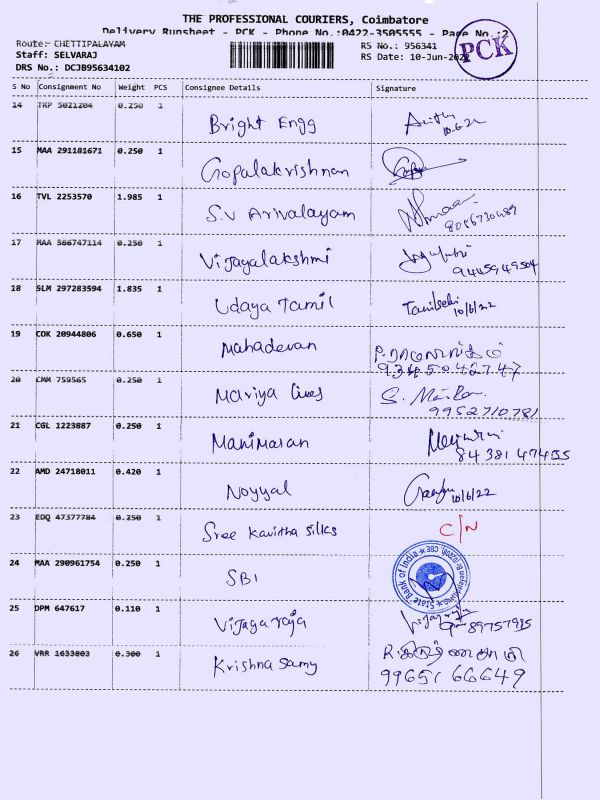 THE PROFESSIONAL COURIERS, Coimbatore
Delivery Runsheet - PCK - Phone No.:0422-3505555 - Page No.:2
Route:- CHETTIPALAYAM RS No.: 956341
Staff: SELVARAJ RS Date: 10-Jun-2022
DRS No.: DCJB95634102
PCK
S No Consignment No Weight PCS Consignee Details Signature
14 TRP 5021204 0.250 1 Bright Engg
10.6.22
15 MAA 291181671 0.250 1 Gopalakrishnan
16 TVL 2253570 1.985 1 S.V Arivalayam
17 MAA 366747114 0.250 1 Vijayalakshmi
9445949504
18 SLM 297283594 1.835 1 Udaya Tamil
10/6/22
19 COK 20944806 0.650 1 Mahadevan
20 CMM 759565 0.250 1 Mariya
9952710781
21 CGL 1223887 0.250 1 Manimaran
84381 47455
22 AMD 24718011 0.420 1 Noyyal
10/6/22
23 EDQ 47377784 0.250 1 Sree Kavitha silks C/N
24 MAA 290961754 0.250 1 SBI
State Bank of India
25 DPM 647617 0.110 1 Vijaya raja
26 VRR 1633803 0.300 1 Krishna Samy
99651 66649